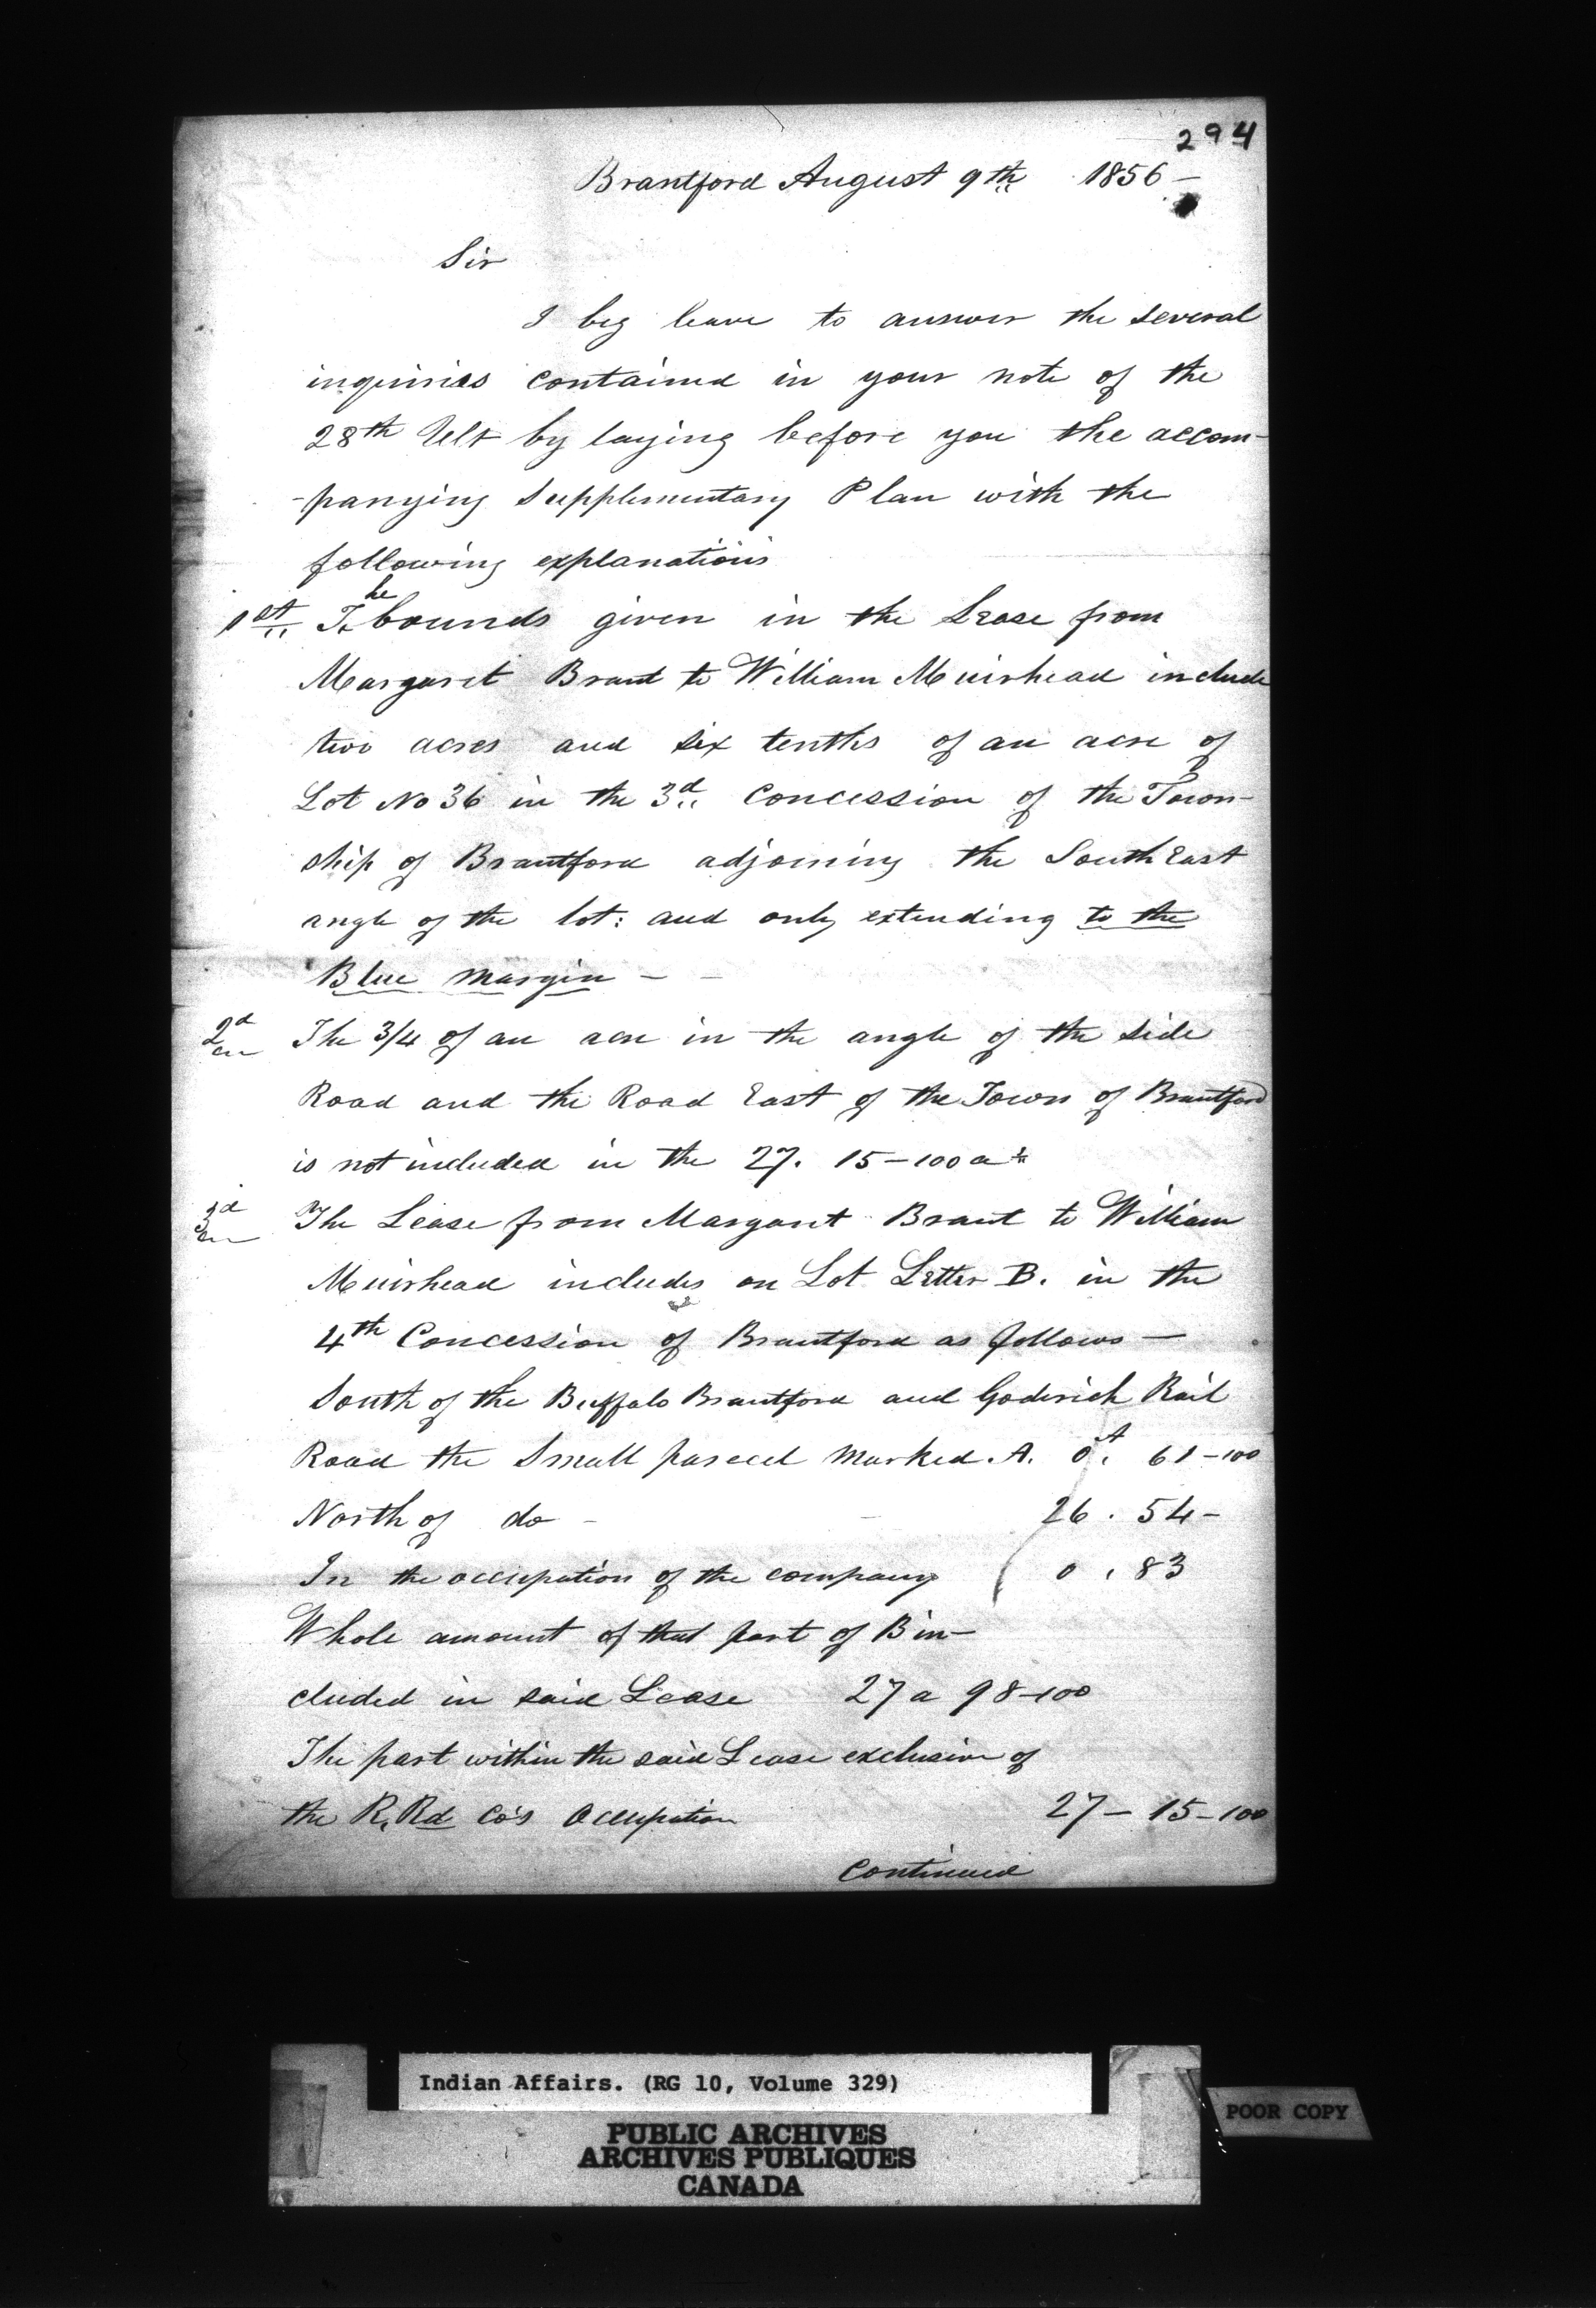 294
Brantford August 9th 1856 —
Sir
I beg leave to answer the several
inquiries contained in your note of the
28th Ult by laying before you the accom-
-panying Supplementary Plan with the
following explanations
1st The bounds given in the Lease from
Margaret Brant to William Muirhead include
two acres and six tenths of an acre of
Lot No 36 in the 3d Concession of the Town-
ship of Brantford adjoining the South East
angle of the lot: and only extending to the
Blue margin —
2d The 3/4 of an acre in the angle of the side
Road and the Road East of the Town of Brantford
is not included in the 27. 15-100 as
3d The Lease from Margaret Brant to William
Muirhead includes on Lot Letter B. in the
4th Concession of Brantford as follows —
South of the Buffalo Brantford and Goderich Rail
Road the Small parcel marked A. 0A. 61-100
North of do - 26. 54-
In the occupation of the company 0. 83
Whole amount of that part of B in-
cluded in said Lease 27 a 98-100
The part within the said Lease exclusive of
the R. Rd Co's Occupation 27- 15-100
Continued
Indian Affairs. (RG 10, Volume 329)
PUBLIC ARCHIVES
ARCHIVES PUBLIQUES
CANADA
POOR COPY